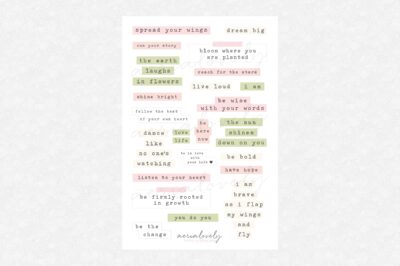 spread your wings
dream big
own your story
bloom where you
are planted
the earth
laughs
in flowers
reach for the stars
live loud
i am
shine bright
be wise
with your words
follow the beat
of your own heart
be
here
now
the sun
shines
down on you
dance
like
no one's
watching
love
life
be in love
with your life
be bold
listen to your heart
have hope
be firmly rooted
in growth
i am
brave
as i flap
my wings
and
fly
you do you
be the
change